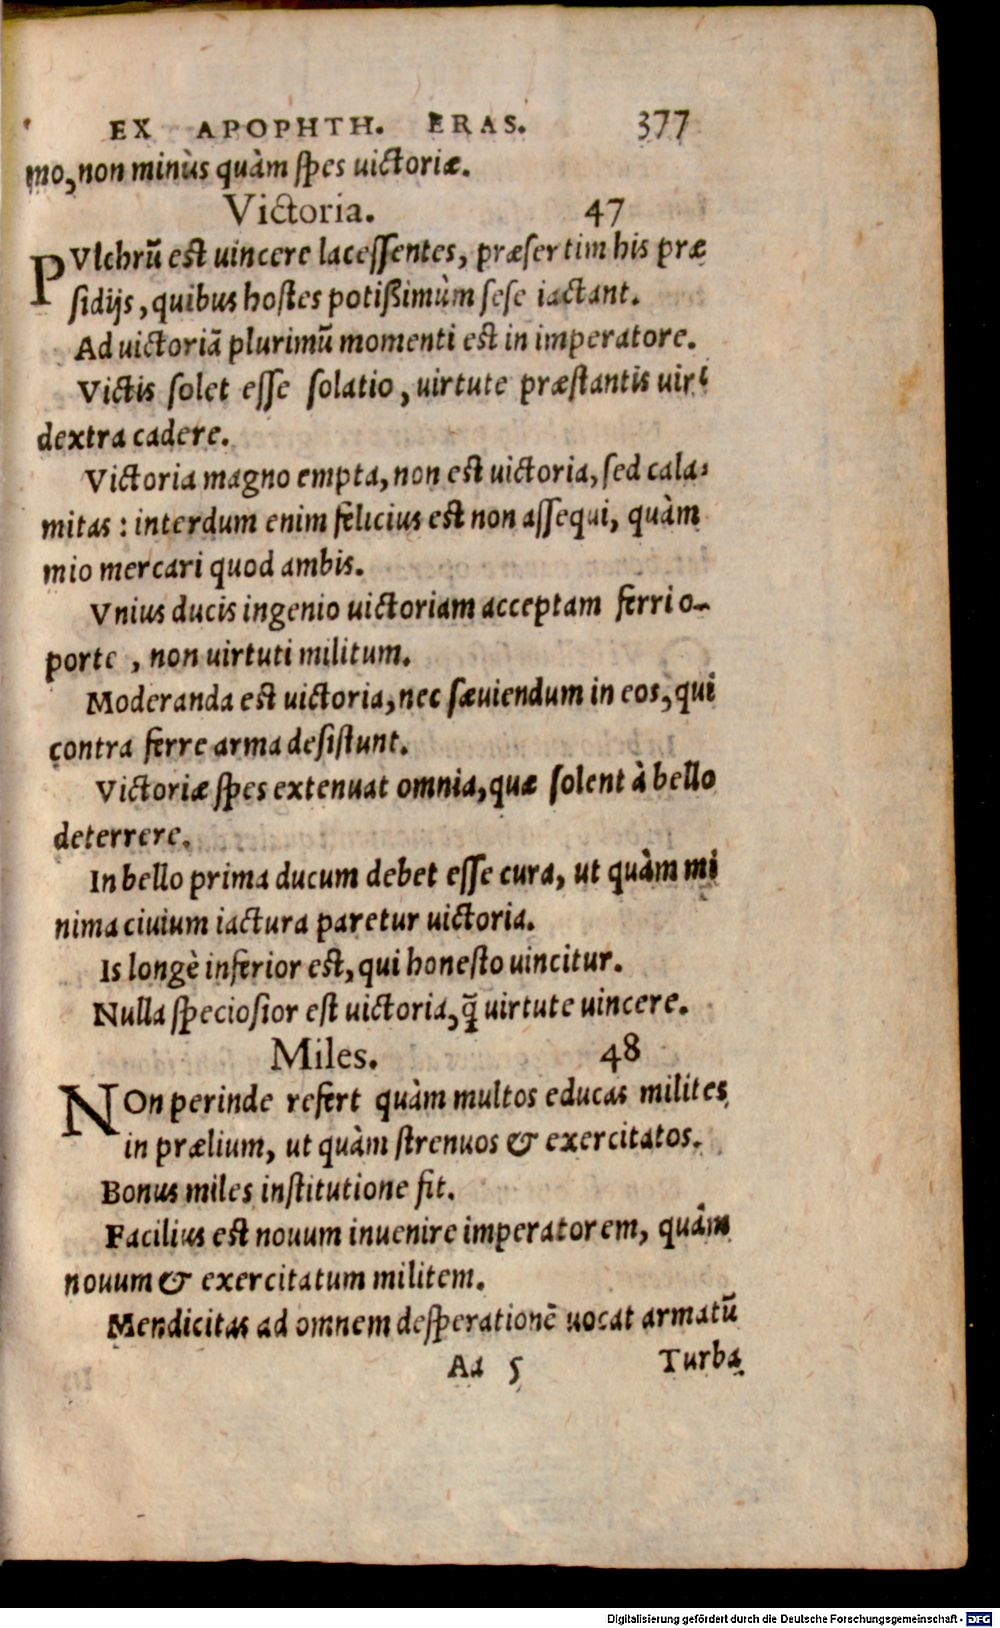 EX APOPHTH. ERAS. 377
mo, non minùs quàm spes uictoriæ.
Victoria. 47
PVlchrū est uincere lacessentes, præsertim his præ
sidijs, quibus hostes potißimùm sese iactant.
Ad uictoriā plurimū momenti est in imperatore.
Victis solet esse solatio, uirtute præstantis uiri
dextra cadere.
Victoria magno empta, non est uictoria, sed cala-
mitas: interdum enim felicius est non assequi, quàm
mio mercari quod ambis.
Vnius ducis ingenio uictoriam acceptam ferri o-
porte , non uirtuti militum.
Moderanda est uictoria, nec sæuiendum in eos, qui
contra ferre arma desistunt.
Victoriæ spes extenuat omnia, quæ solent à bello
deterrere.
In bello prima ducum debet esse cura, ut quàm mi
nima ciuium iactura paretur uictoria.
Is longè inferior est, qui honesto uincitur.
Nulla speciosior est uictoria, q̄ uirtute uincere.
Miles. 48
NOn perinde refert quàm multos educas milites
in prælium, ut quàm strenuos & exercitatos.
Bonus miles institutione fit.
Facilius est nouum inuenire imperatorem, quàm
nouum & exercitatum militem.
Mendicitas ad omnem desperationē uocat armatū
Aa 5 Turba
Digitalisierung gefördert durch die Deutsche Forschungsgemeinschaft - DFG